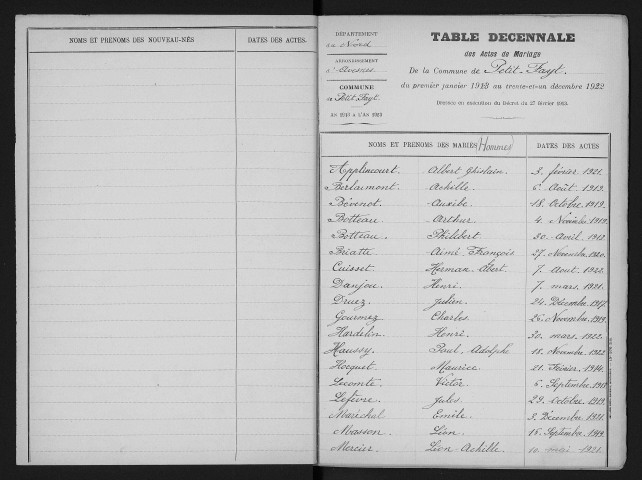 NOMS ET PRÉNOMS DES NOUVEAU-NÉS DATES DES ACTES.
DÉPARTEMENT
du Nord
ARRONDISSEMENT
d'Avesnes
COMMUNE
de Petit-Fayt
AN 1913 A L'AN 1922
TABLE DECENNALE
des Actes de Mariage
De la Commune de Petit-Fayt.
du premier janvier 1913 au trente-et-un décembre 1922
Dressée en exécution du Décret du 27 février 1913.
NOMS ET PRÉNOMS DES MARIÉS Hommes DATES DES ACTES
Applincourt. Albert Ghislain. 3. février. 1921.
Berlaimont Achille. 6. Août. 1919.
Bévenot Auxibe. 18. Octobre. 1919.
Botteau. Arthur 4. Novembre. 1919.
Botteau. Philibert 30. Avril. 1913.
Briatte Aimé François 27. Novembre. 1920.
Cuisset Herman Albert. 7. Août. 1922.
Danjou. Henri. 7. mars. 1921.
Druez Julien. 24. Décembre. 1917.
Gourmez Charles. 26. Novembre. 1919.
Hardelin Henri. 30. mars. 1922.
Haussy. Paul Adolphe 18. Novembre. 1922
Hocquet Maurice 21. Février. 1914.
Lecomte Victor. 6. Septembre.
Lefèvre Jules 29. Octobre. 1919.
Maréchal Emile. 3. Décembre. 1921.
Masson Léon. 16. Septembre.
Mercier. Léon Achille. 10. 1921.